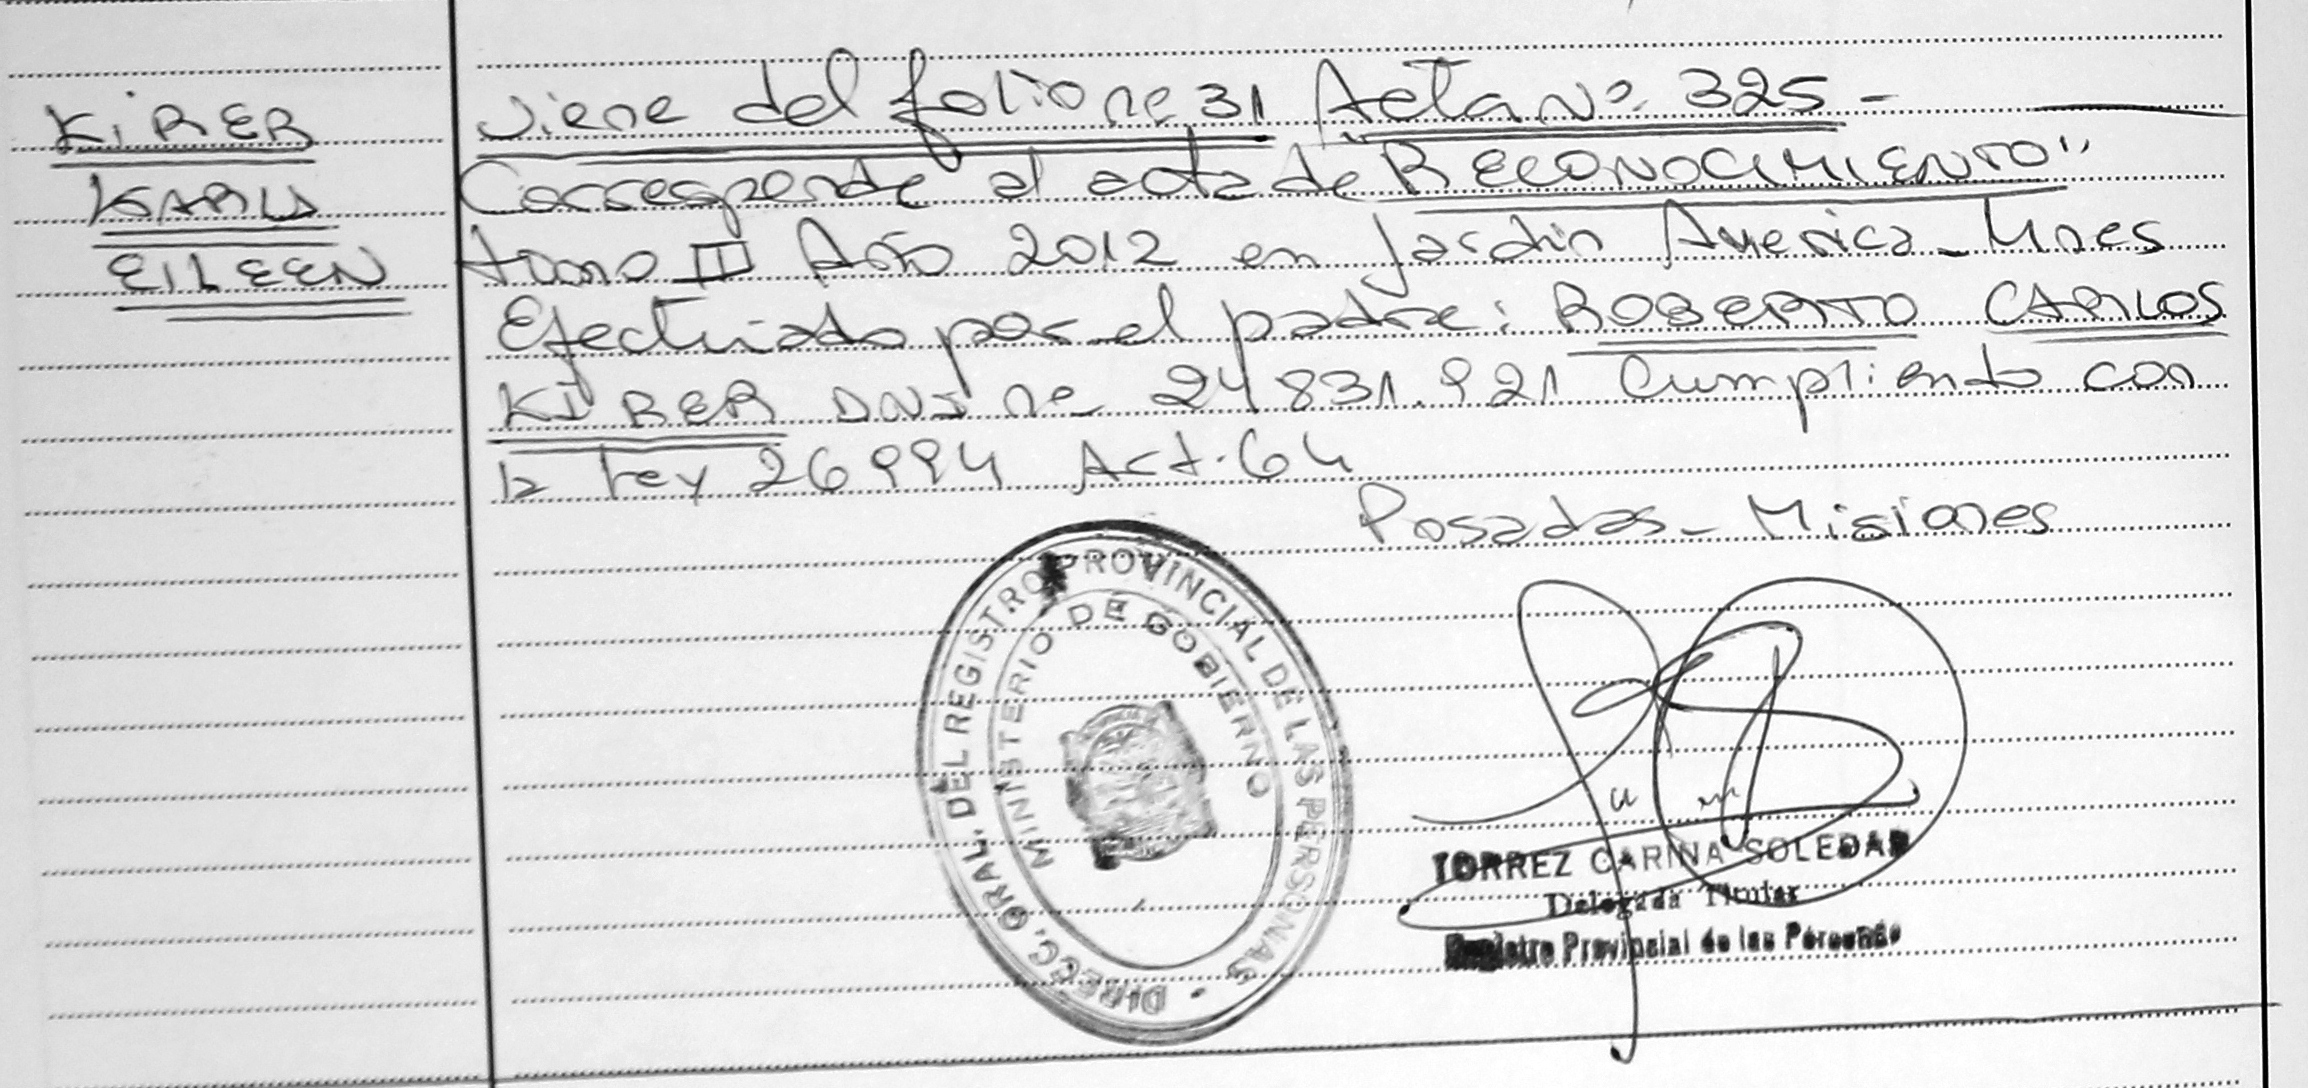 KiBER
KARLA
EILEEN
viene del folio nº 31 Acta Nº 325 -
Corresponde al acta de "RECONOCIMIENTO"
tomo II Año 2012 en Jardin America - Mnes
Efectuado por el padre: ROBERTO CARLOS
KIBER DNI nº 24831.921 Cumpliendo con
la Ley 26994 Art. 64
Posadas - Misiones
DIRECC. GRAL. DEL REGISTRO PROVINCIAL DE LAS PERSONAS
MINISTERIO DE GOBIERNO
TORREZ CARINA SOLEDAD
Delegada Titular
Registro Provincial de las Personas